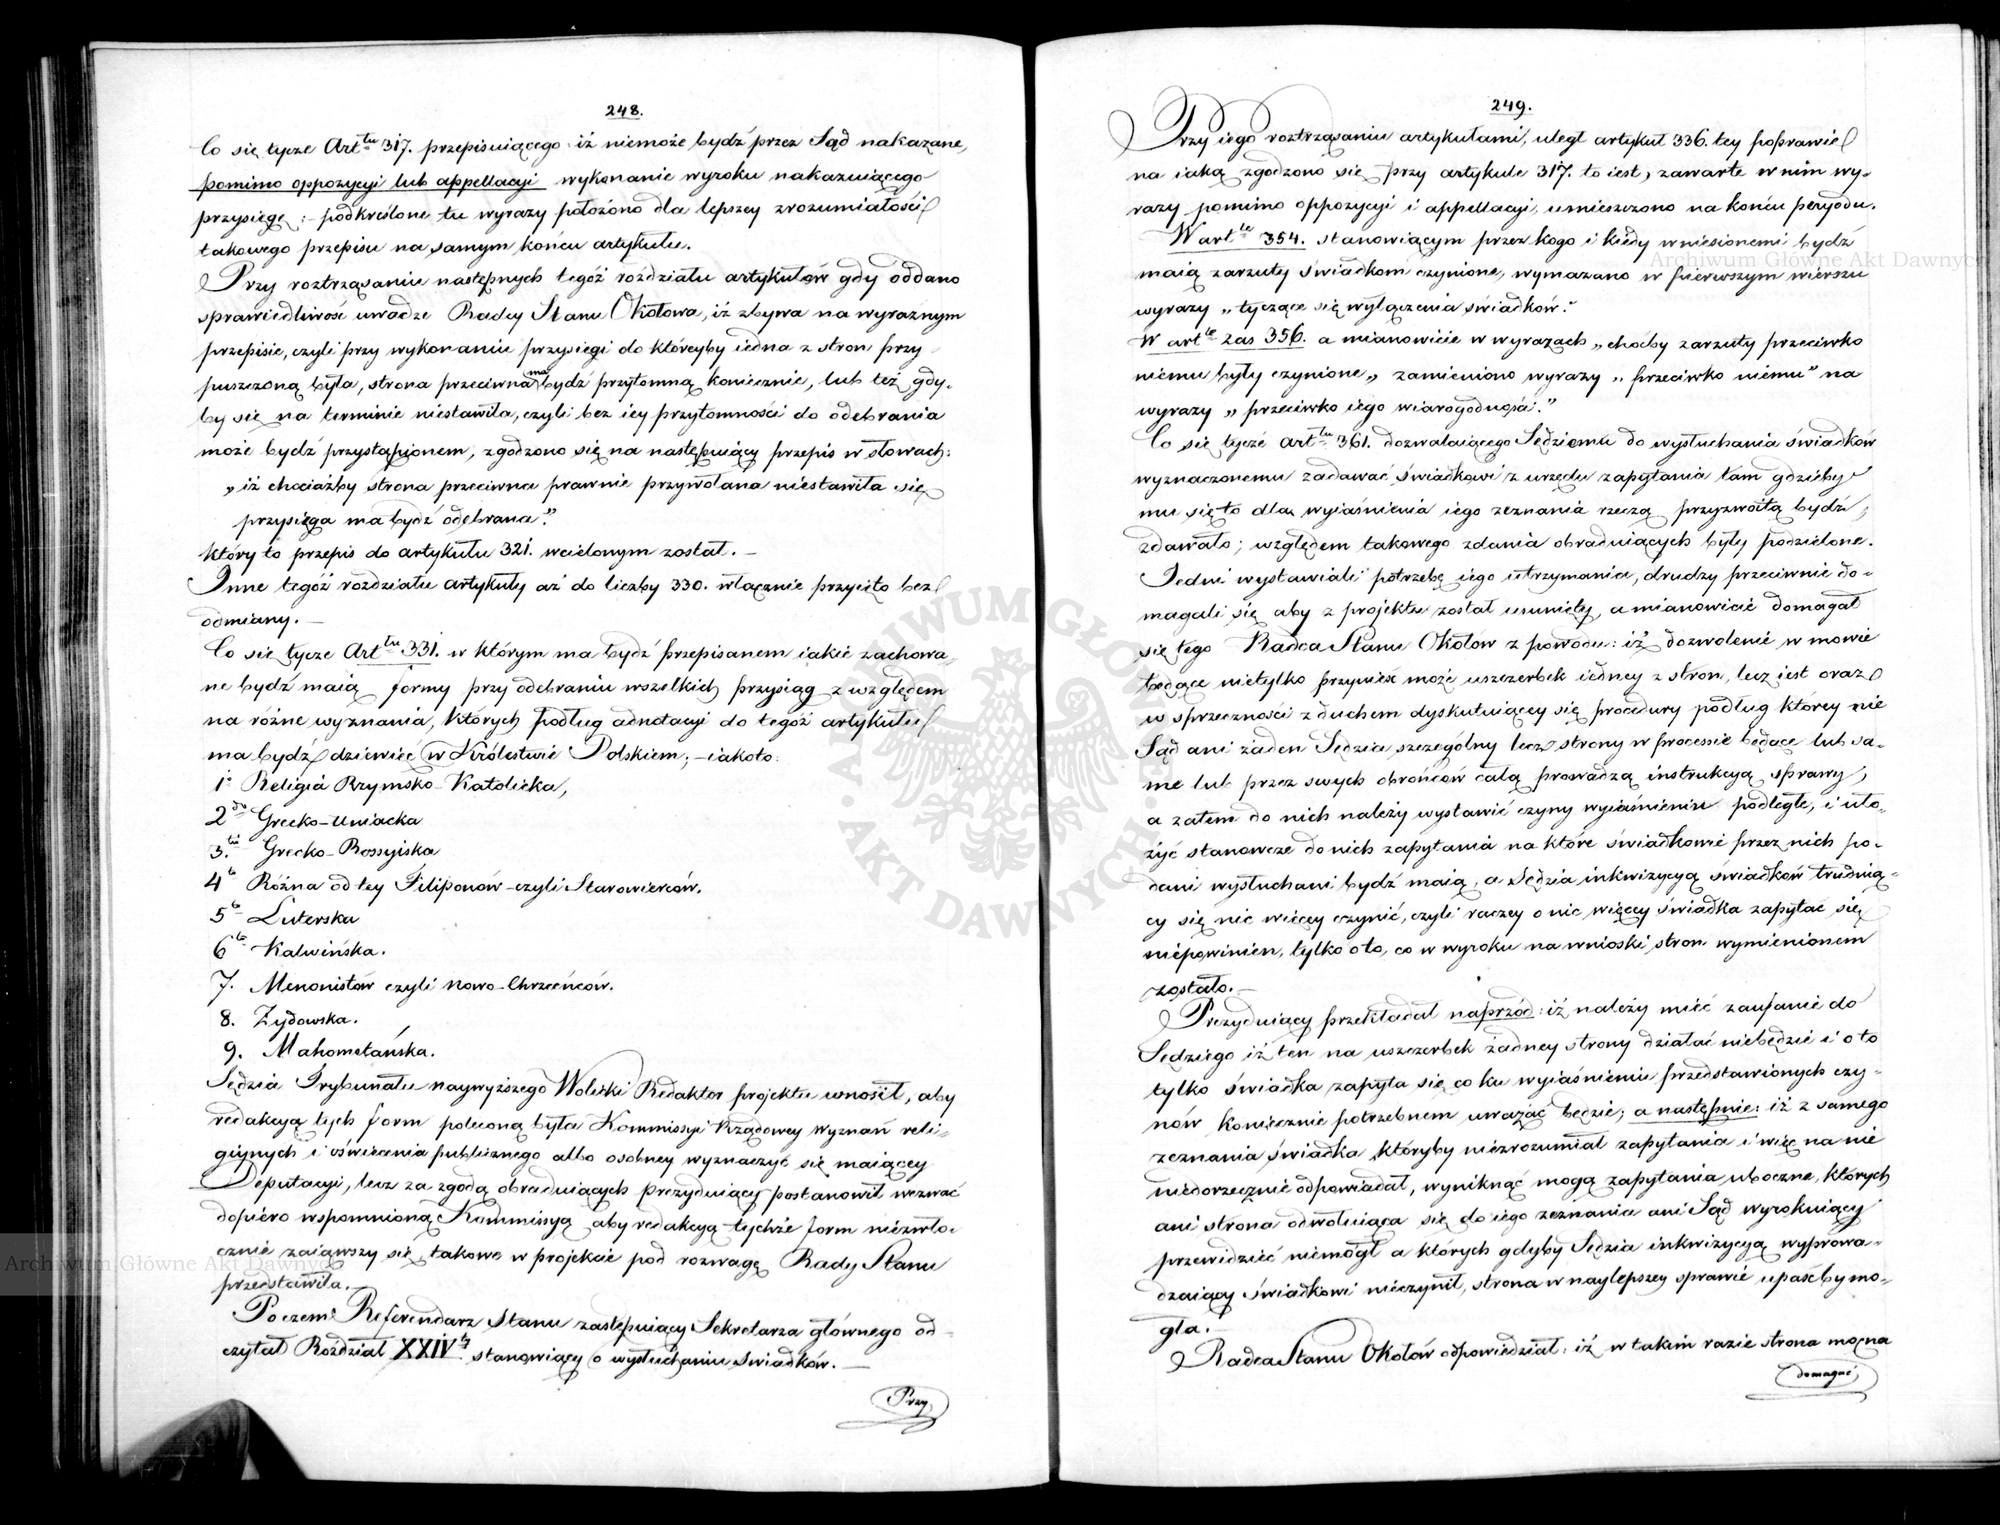 248.
Co się tycze Art^tu 317. przepisuiącego iż niemoże bydź przez Sąd nakazane,
pomimo oppozycyi lub appellacyi wykonanie wyroku nakazuiącego
przysięgę: podkreślone tu wyrazy położono dla lepszey zrozumiałości
takowego przepisu na samym końcu artykułu.
Przy roztrząsaniu następnych tegoż rozdziału artykułów gdy oddano
sprawiedliwość uwadze Radcy Stanu Okołowa, iż zbywa na wyraźnym
przepisie, czyli przy wykonaniu przysięgi do któreyby iedna z stron przy-
puszczoną była, strona przeciwna ma bydź przytomną koniecznie, lub też gdy-
by się na terminie niestawiła, czyli bez iey przytomności do odebrania
może bydź przystąpionem, zgodzono się na następuiący przepis w słowach:
„iż chociażby strona przeciwna prawnie przywołana niestawiła się
przysięga ma bydź odebrana."
który to przepis do artykułu 321. wcielonym został. —
Inne tegoż rozdziału artykuły aż do liczby 330. włącznie przyięto bez
odmiany. —
Co się tycze Art^tu 331. w którym ma bydź przepisanem iakie zachowa-
ne bydź maią formy przy odebraniu wszelkich przysiąg z względem
na różne wyznania, których podług adnotacyi do tegoż artykułu
ma bydź dziewięć w Królestwie Polskiem; — iakoto:
1° Religia Rzymsko-Katolicka,
2^do Grecko-Uniacka
3.^tio Grecko-Rossyiska
4^to Różna od tey Filiponów czyli Starowierców.
5^to Luterska
6^to Kalwińska.
7. Menonistów czyli nowo-Chrzceńców.
8. Żydowska.
9. Mahometańska.
Sędzia Trybunału naywyższego Wolicki Redaktor projektu wnosił, aby
redakcyą tych form poleconą była Kommissyi Rządowey Wyznań reli-
giynych i oświecenia publicznego albo osobney wyznaczyć się maiącey
Deputacyi, lecz za zgodą obraduiących Prezyduiący postanowił wezwać
dopiero wspomnioną Kommissyą aby redakcyą tychże form niezwło-
cznie zaiąwszy się takowe w projekcie pod rozwagę Rady Stanu
przedstawiła.
Poczem Referendarz Stanu zastępuiący Sekretarza głównego od-
czytał Rozdział XXIV^ty stanowiący o wysłuchaniu świadków. —
Przy
249.
Przy iego roztrząsaniu artykułami, uległ artykuł 336. tey poprawie
na iaką zgodzono się przy artykule 317. to iest, zawarte w nim wy-
razy pomimo oppozycyi i appellacyi, umieszczono na końcu peryodu.
W art^le 354. stanowiącym przez kogo i kiedy wniesionemi bydź
maią zarzuty świadkom czynione, wymazano w pierwszym wierszu
wyrazy „tyczące się wyłączenia świadków."
W art^le zaś 356. a mianowicie w wyrazach „choćby zarzuty przeciwko
niemu były czynione„ zamieniono wyrazy „przeciwko niemu" na
wyrazy „przeciwko iego wiarogodności."
Co się tycze art^tu 361. dozwalaiącego Sędziemu do wysłuchania świadków
wyznaczonemu zadawać świadkowi z urzędu zapytania tam gdzieby
mu się to dla wyiaśnienia iego zeznania rzeczą przyzwoitą bydź
zdawało; względem takowego zdania obraduiących były podzielone.
Jedni wystawiali potrzebę iego utrzymania, drudzy przeciwnie do-
magali się aby z projektu został usunięty, a mianowicie domagał
się tego Radca Stanu Okołów z powodu: iż dozwolenie w mowie
będące nietylko przynieść może uszczerbek iedney z stron, lecz iest oraz
w sprzeczności z duchem dyskutuiącey się procedury podług którey nie
Sąd ani żaden Sędzia szczególny lecz strony w processie będące lub sa-
me lub przez swych obrońców całą prowadzą instrukcyą sprawy,
a zatem do nich należy wystawić czyny wyiaśnieniu podległe, i uło-
żyć stanowcze do nich zapytania na które świadkowie przez nich po-
dani wysłuchani bydź maią, a Sędzia inkwizycyą świadków trudnią-
cy się nic więcey czynić, czyli raczey o nic więcey świadka zapytać się
niepowinien, tylko o to, co w wyroku na wnioski stron wymienionem
zostało. —
Prezyduiący przekładał naprzód: iż należy mieć zaufanie do
Sędziego iż ten na uszczerbek żadney strony działać niebędzie i o to
tylko świadka zapyta się co ku wyiaśnieniu przedstawionych czy-
nów koniecznie potrzebnem uważać będzie; a następnie: iż z samego
zeznania świadka któryby niezrozumiał zapytania i więc na nie
niedorzecznie odpowiadał, wyniknąć mogą zapytania uboczne, których
ani strona odwołuiąca się do iego zeznania ani Sąd wyrokuiący
przewidzieć niemógł a których gdyby Sędzia inkwizycyą wyprowa-
dzaiący świadkowi nieczynił, strona w naylepszey sprawie upaśćby mo-
gła. —
Radca Stanu Okołów odpowiedział: iż w takim razie strona można
domagać
Archiwum Główne Akt Dawnych
Archiwum Główne Akt Dawnych
ARCHIWUM GŁÓWNE AKT DAWNYCH